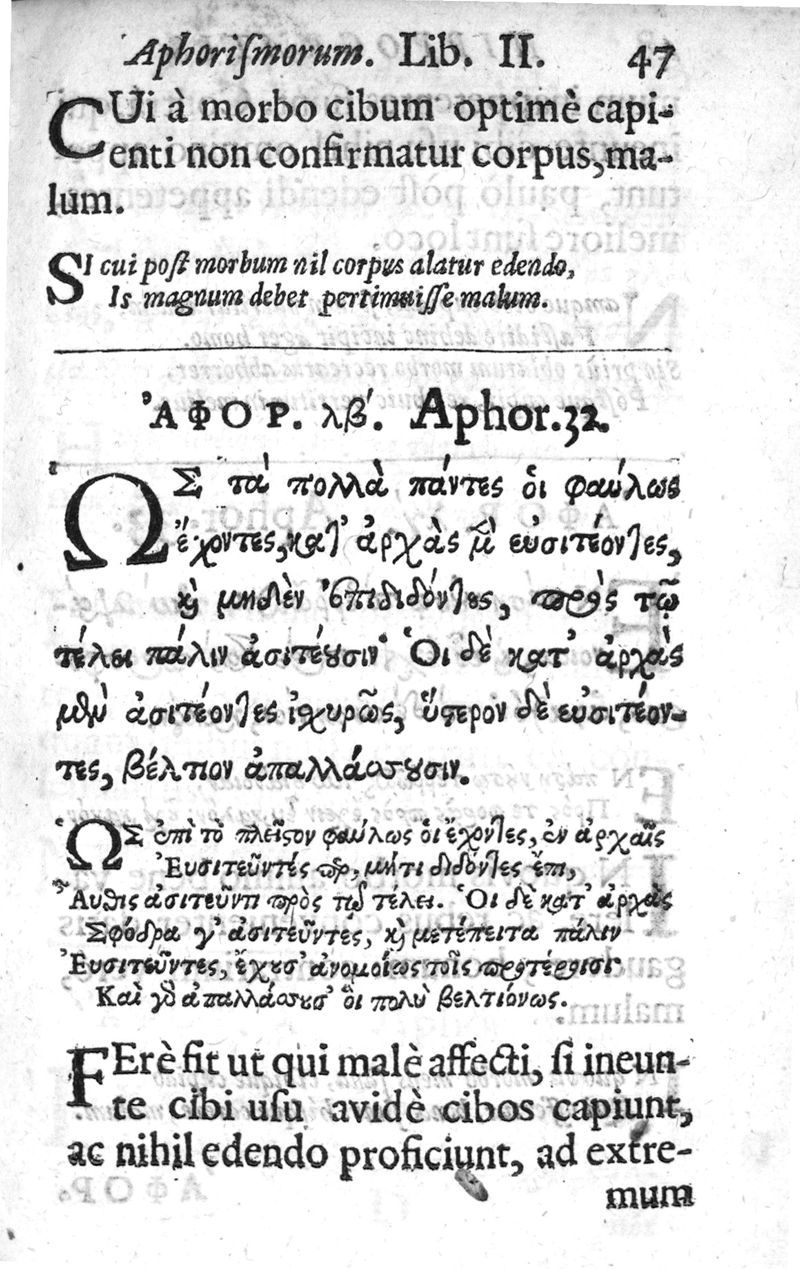 Aphoriſmorum. Lib. II. 47
CUi à morbo cibum optimè capi-
enti non confirmatur corpus, ma-
lum.
SI cui poſt morbum nil corpus alatur edendo,
Is magnum debet pertimuiſſe malum.
ἈΦΟΡ. λβ΄. Aphor. 32.
ὩΣ τὰ πολλὰ πάντες ὁι φαύλως
ἔχοντες, κατ᾽ ἀρχὰς μὲν εὐσιτέοντες,
καὶ μηδὲν ἐπιδιδόντες, πρὸς τῷ
τέλει πάλιν ἀσιτέουσιν· Ὁι δὲ κατ᾽ ἀρχὰς
μὲν ἀσιτέοντες ἰσχυρῶς, ὕστερον δὲ εὐσιτέον-
τες, βέλτιον ἀπαλλάσσουσιν.
ὩΣ ἐπὶ τὸ πλεῖστον φαύλως ὁι ἔχοντες, ἐν ἀρχαῖς
Ἐυσιτεῦντές περ, μήτι διδόντες ἔπι,
Ἄυθις ἀσιτεῦντι πρὸς τῷ τέλει. Ὁι δὲ κατ᾽ ἀρχὰς
Σφόδρα γ᾽ ἀσιτεῦντές, καὶ μετέπειτα πάλιν
Ἐυσιτεῦντες, ἔχουσ᾽ ἀνομοίως τοῖς προτέροισι·
Καὶ γὰρ ἀπαλλάσσουσ᾽ ὁι πολὺ βελτιόνως.
FErè fit ut qui malè affecti, ſi ineun-
te cibi uſu avidè cibos capiunt,
ac nihil edendo proficiunt, ad extre-
mum